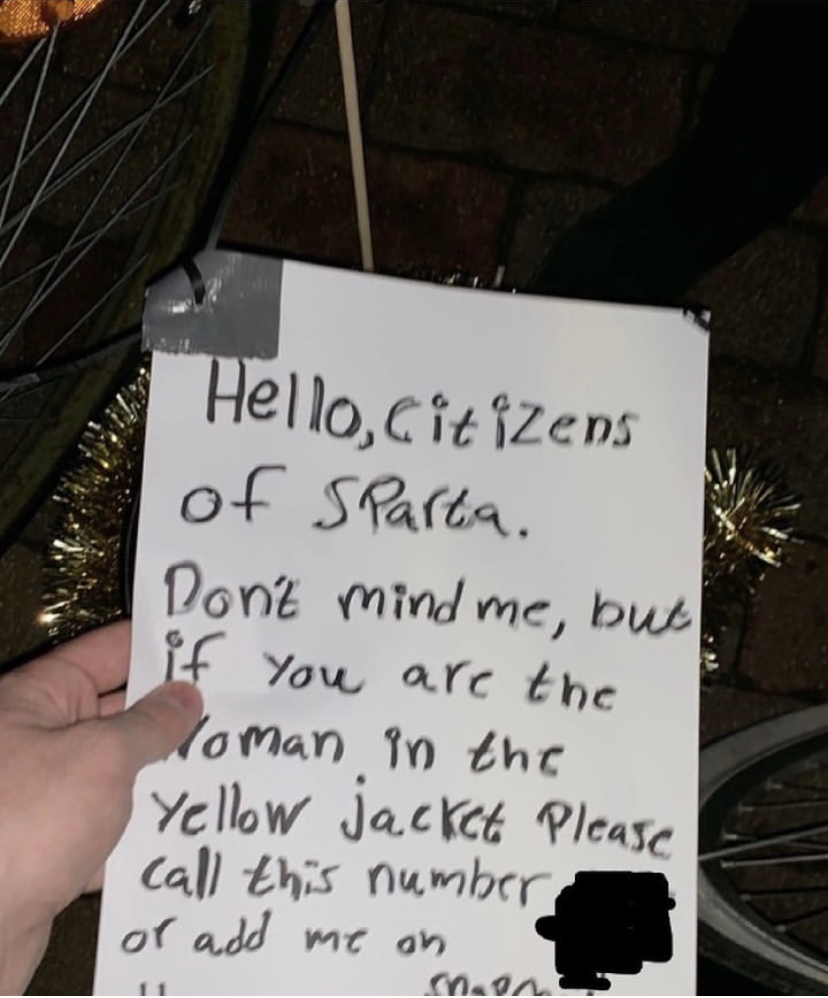 Hello, Citizens
of SParta.
Don't mind me, but
if You are the
Woman in the
Yellow jacket Please
call this number
or add me on